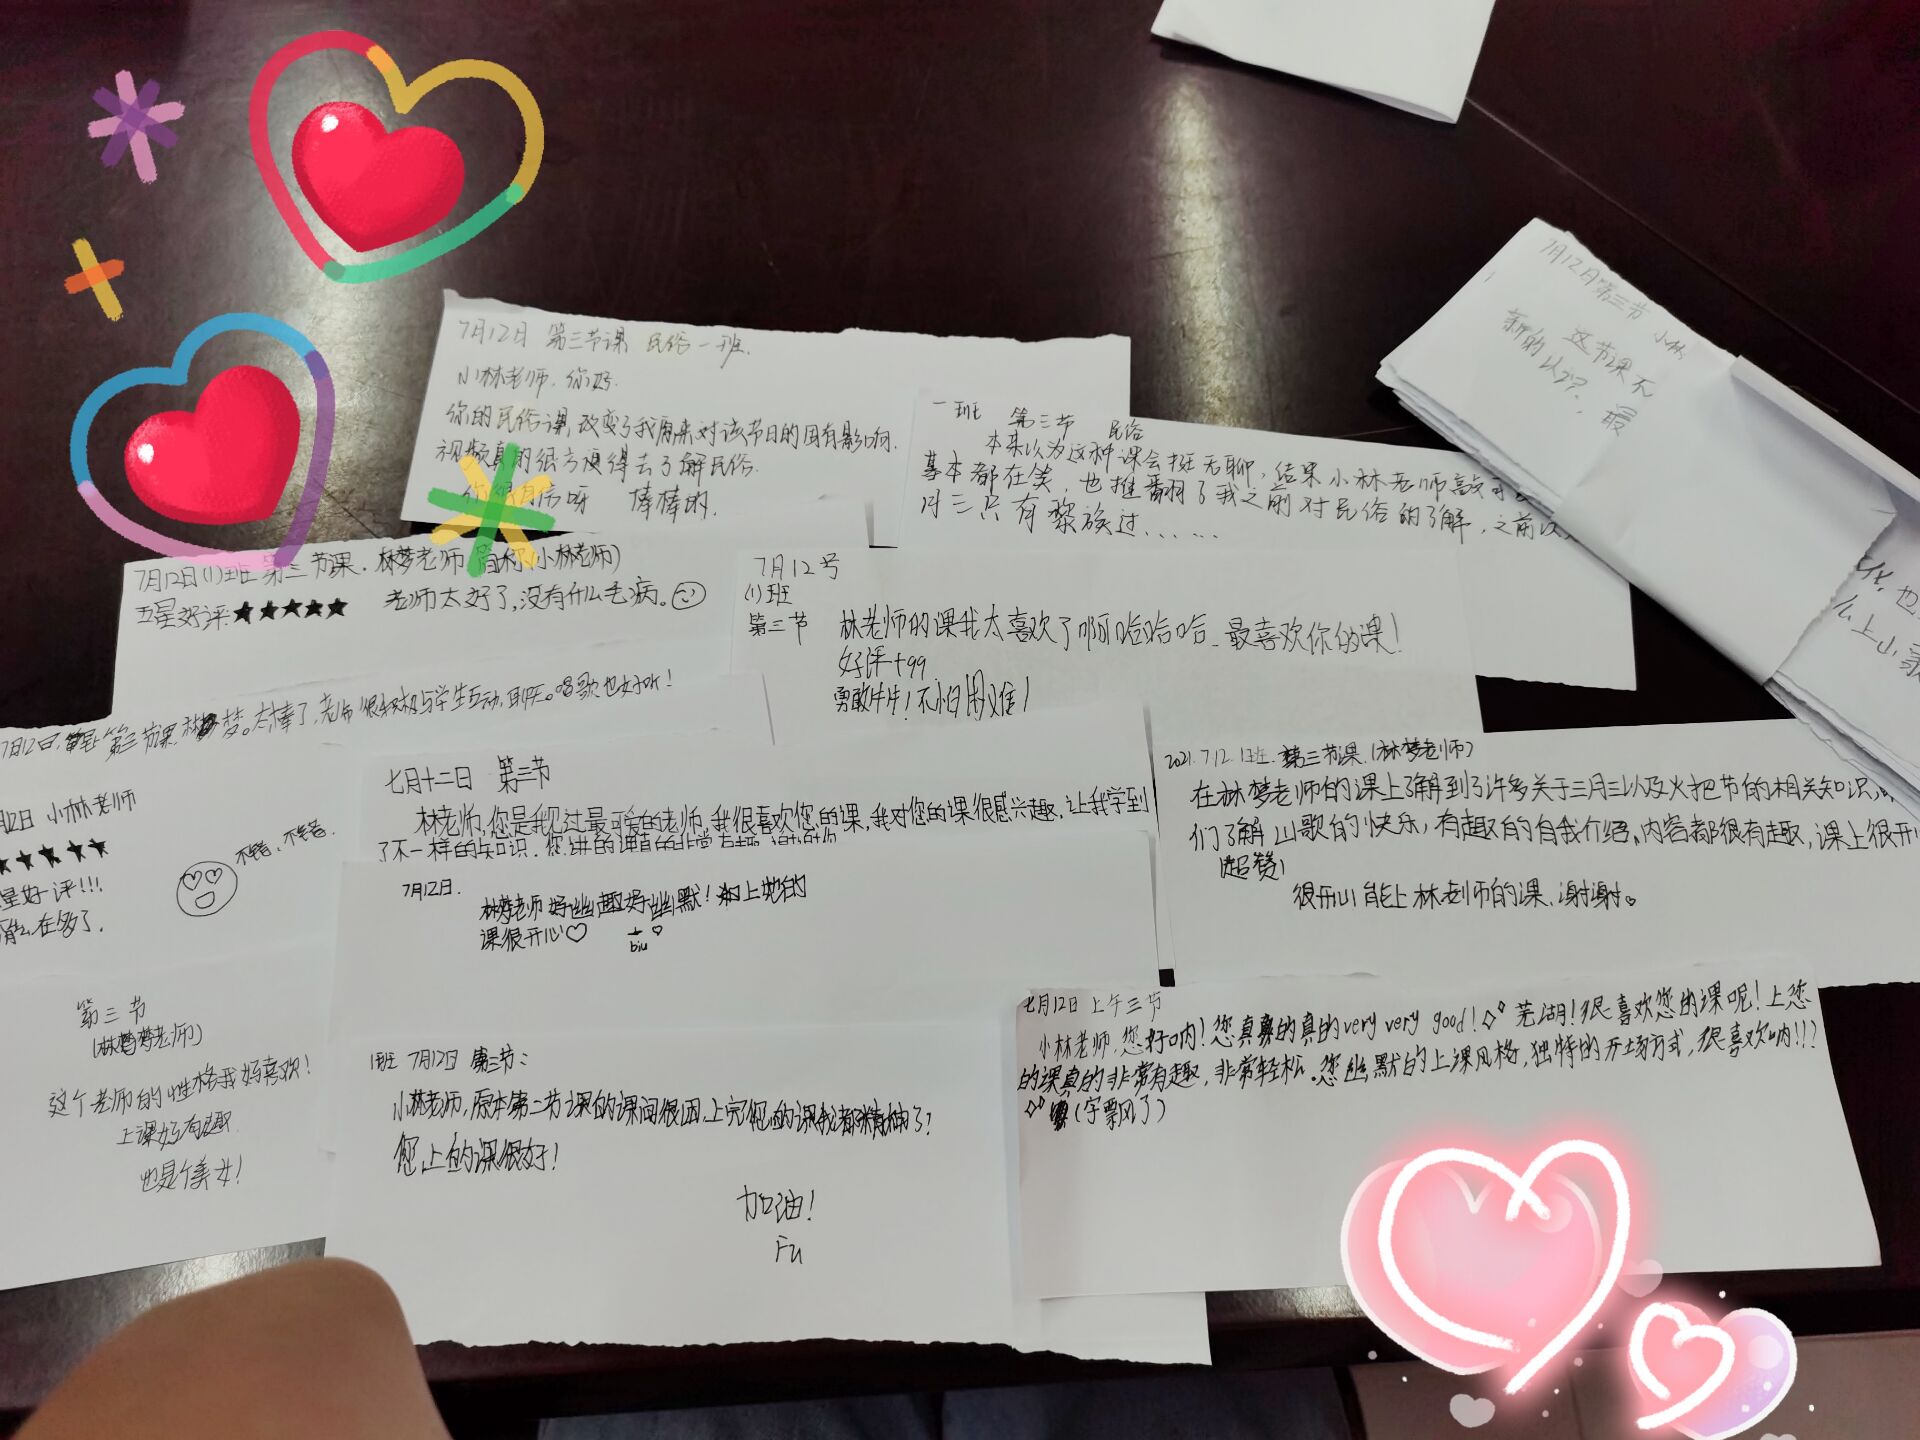 7月12日 第三节课 民俗一班.
小林老师.你好.
你的民俗课,改变了我原来对该节日的固有影响.
视频真的很方便得去了解民俗.
棒棒的.
一班 第三节 民俗
本来以为这种课会挺无聊,结果小林老师
基本都在笑,也推翻了我之前对民俗的了解,之前以
月三只有黎族过......
7月12日第三节 小林
这节课不
新的认识,最
化,也
么上山
7月12日(1)班 第三节课.林梦老师 简称(小林老师)
五星好评★★★★★ 老师太好了,没有什么毛病。
7月12号
(1)班
第三节 林老师的课我太喜欢了啊哈哈哈 最喜欢你的课!
好评+99
勇敢牛牛!不怕困难!
7月12日, 第三节课.林梦。太棒了,老师很积极与学生互动,聊天。唱歌也好听!
小林老师
★★★★★
不错,不错.
星好评!!!
在多了.
七月十二日 第三节
林老师,您是我见过最可爱的老师,我很喜欢您的课,我对您的课很感兴趣,让我学到
了不一样的知识.您讲的课真的非常有趣
7月12日.
林梦老师好幽趣好幽默!上她的
课很开心♡
biu
2021.7.12.1班.第三节课.(林梦老师)
在林梦老师的课上了解到了许多关于三月三以及火把节的相关知识,
们了解山歌的快乐,有趣的自我介绍、内容都很有趣,课上很开
超赞!
很开心能上林老师的课,谢谢。
第三节
(林梦老师)
这个老师的性格我好喜欢!
上课好有趣
也是个美女!
1班 7月12日 第三节:
小林老师,原本第二节课的课间很困,上完您的课我都精神了!
您上的课很好!
加油!
Fu
七月12日 上午三节
小林老师,您好呐!您真的真的very very good! 芜湖!很喜欢您的课呢!上您
的课真的非常有趣,非常轻松。您幽默的上课风格,独特的开场方式,很喜欢呐!!?
(字飘了)